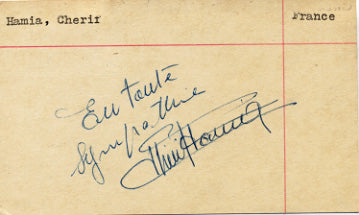 Hamia, Cherif
France
En toute
sympathie
Cherif Hamia